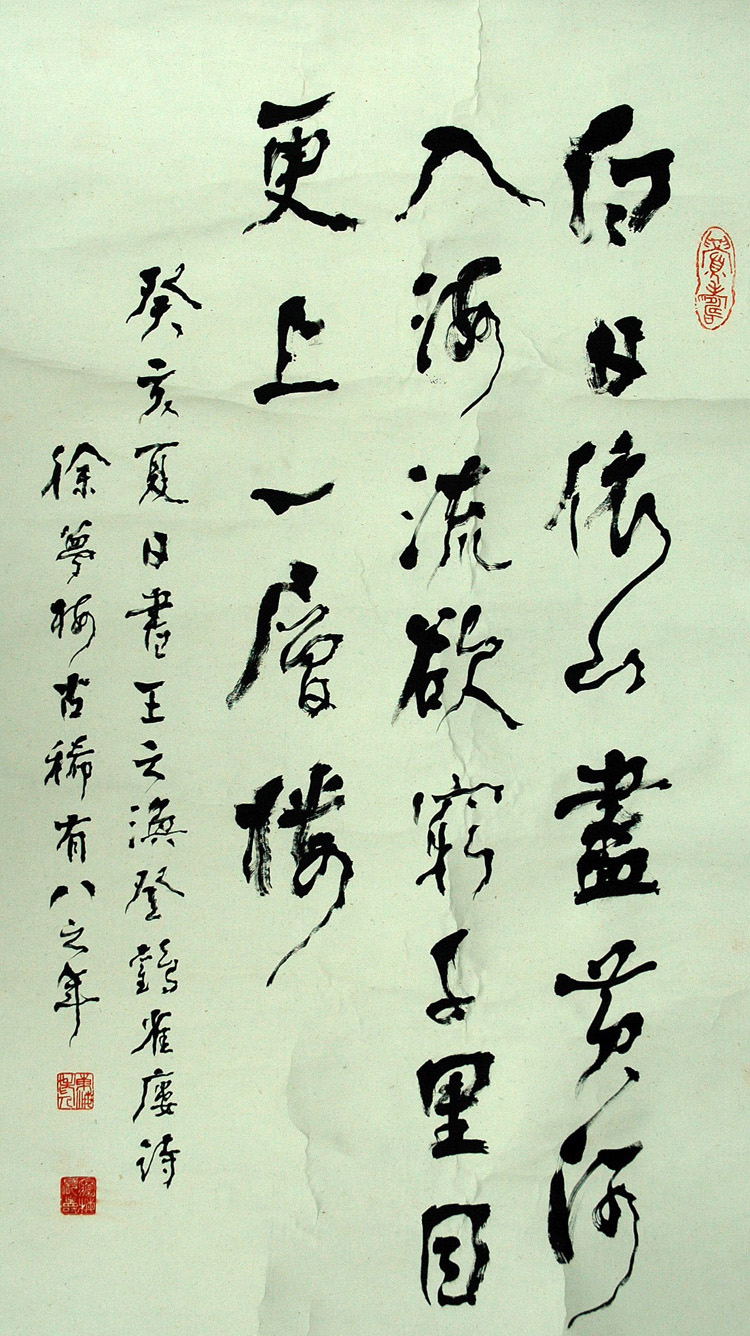 白日依山盡黄河
入海流欲窮千里目
更上一層樓
癸亥夏日書王之渙登鸛雀廔詩
徐夢梅古稀有八之年